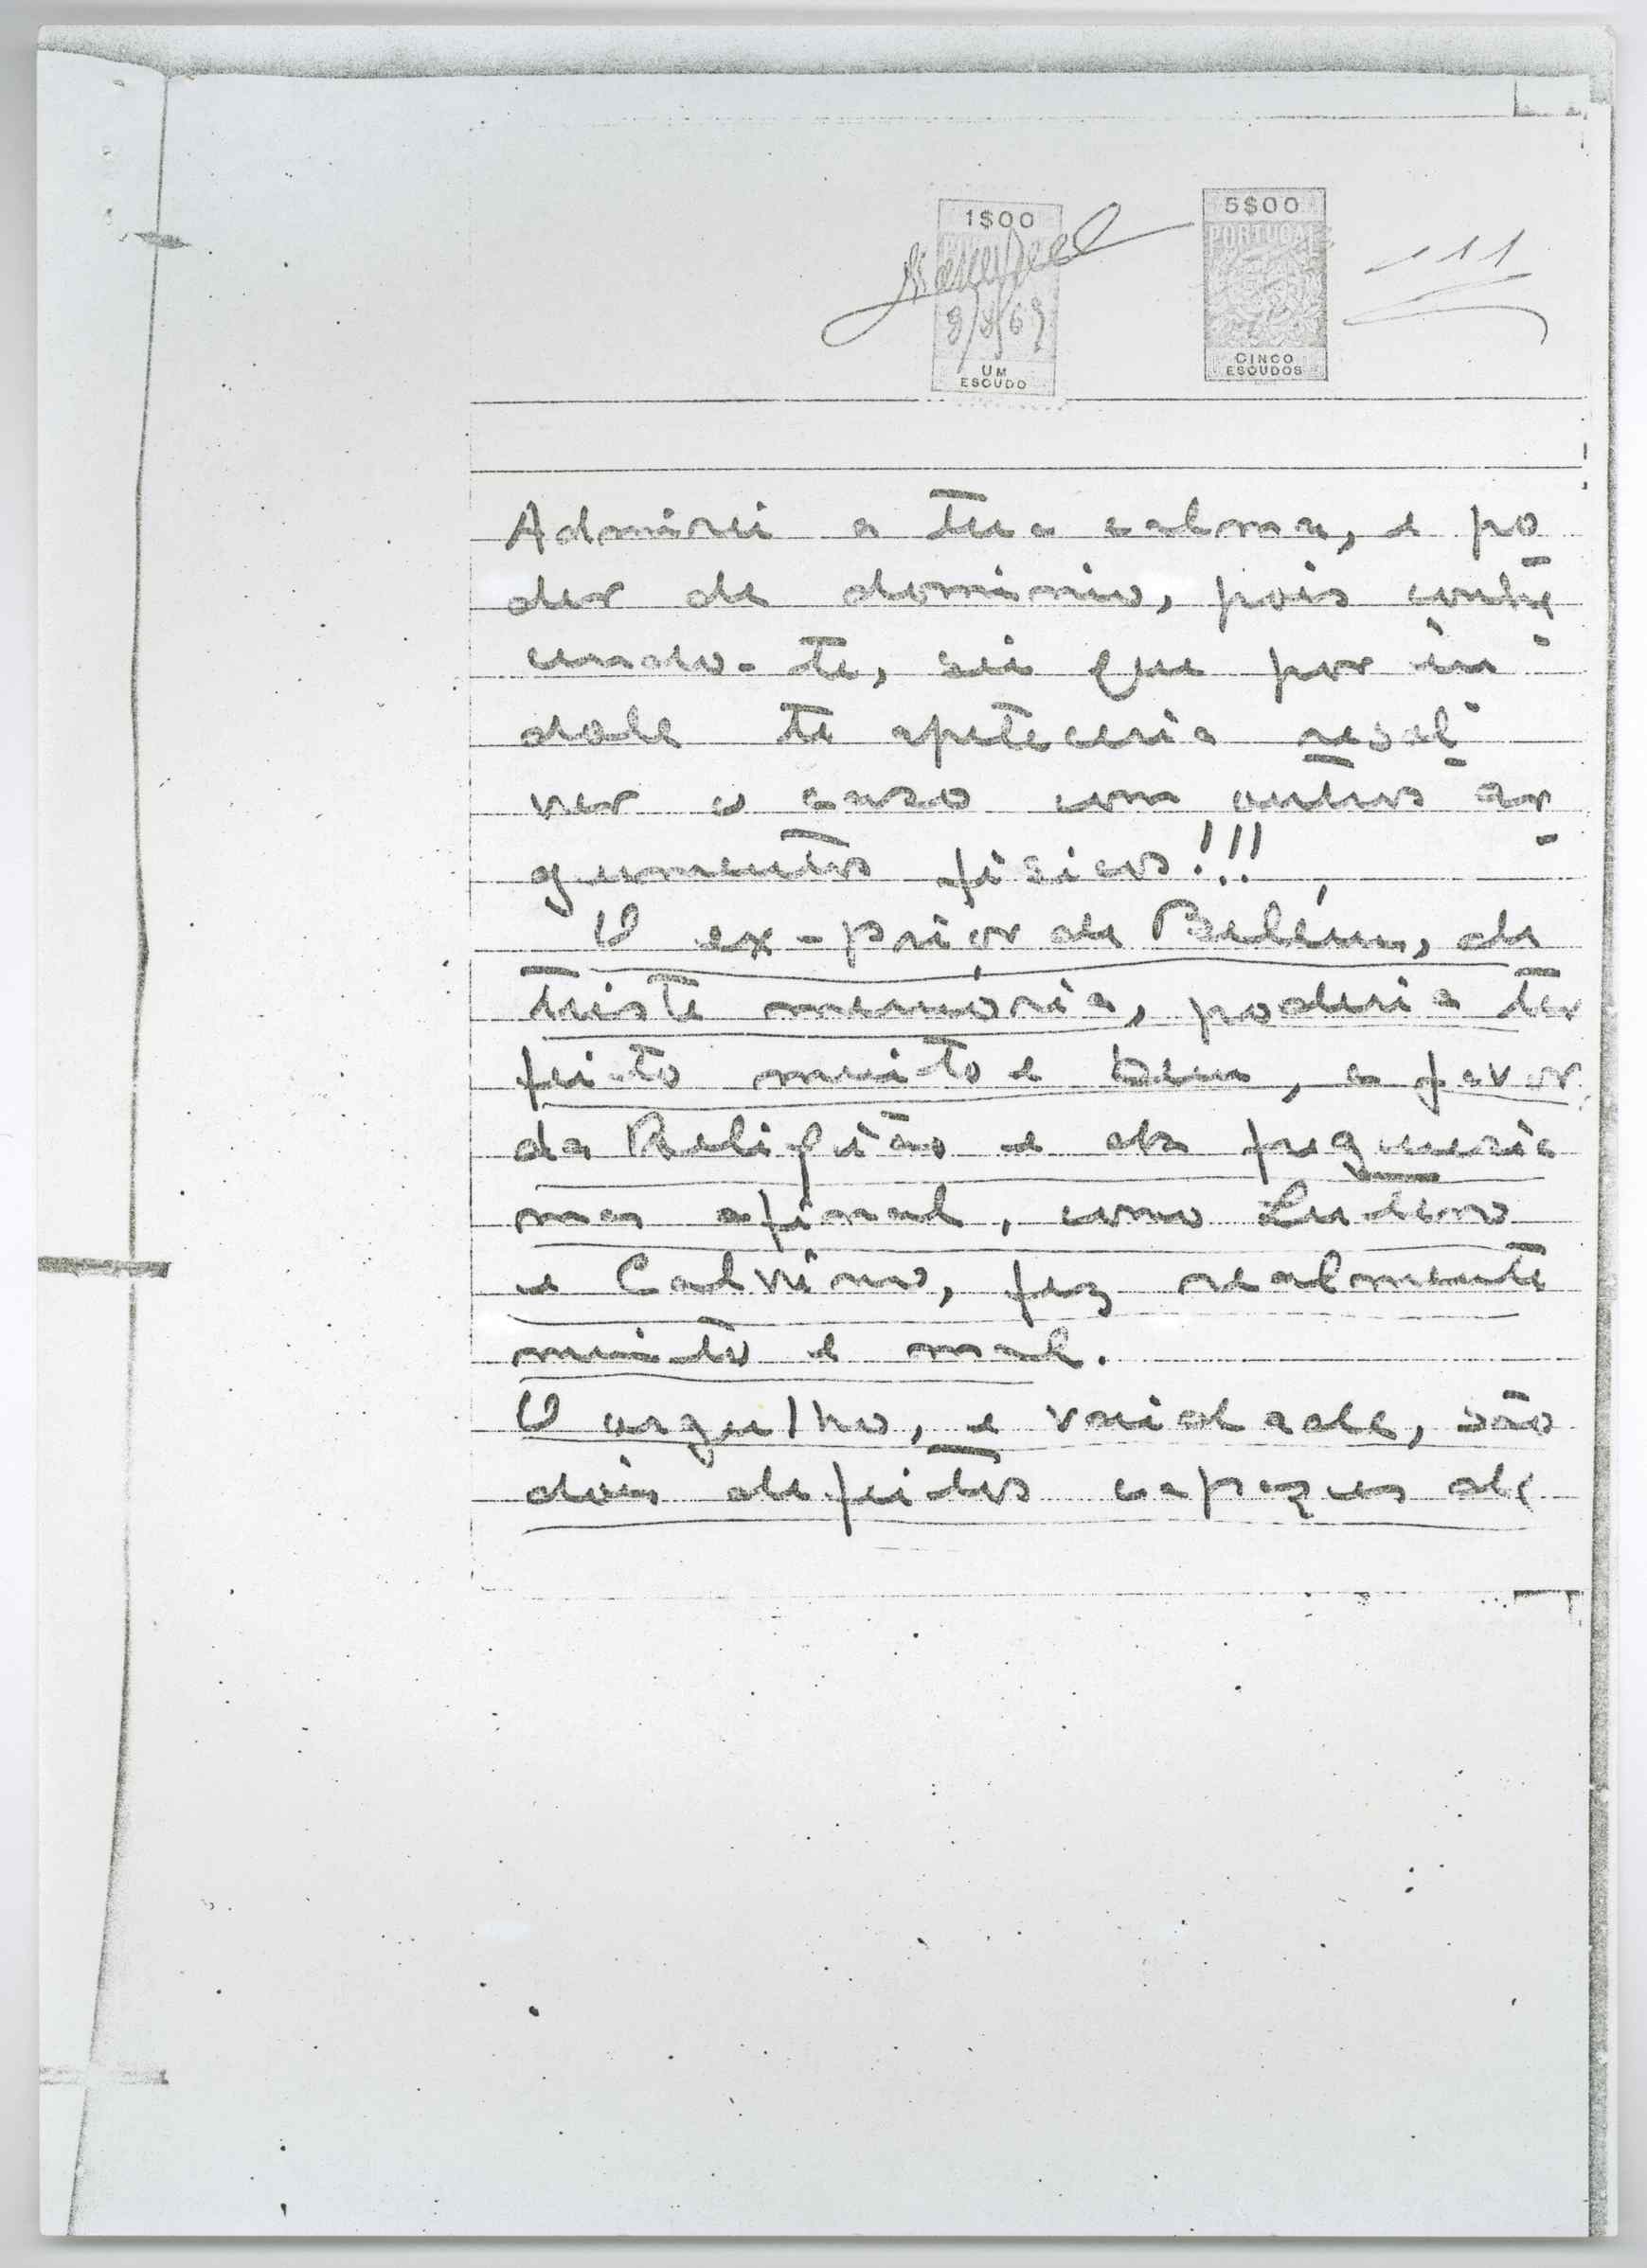 1$00
5$00
PORTUGAL
111
9/9/69
UM
ESCUDO
CINCO
ESCUDOS
Admirei a tua calma, e po
der de dominio, pois conhe
cendo-te, sei que por in
dole te apeteceria resol
ver o caso com outros ar
gumentos fisicos!!!
O ex-prior de Belém, de
triste memória, poderia ter
feito muito e bem, a favor
da Religião e da freguesia
mas afinal, como Lutero
e Calvino, fez realmente
muito e mal.
O orgulho, e vaidade, são
dois defeitos capazes de